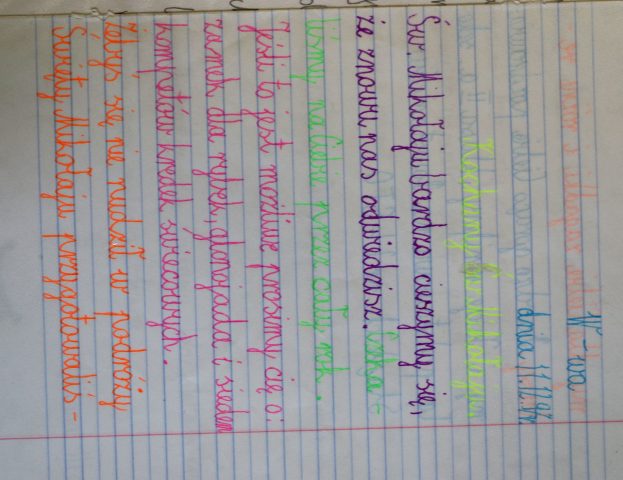 W-wa
dnia 11.12.94
Kochany Św. Mikołaju
Św. Mikołaju bardzo cieszymy się,
że znowu nas odwiedzisz. Czeka-
liśmy na Ciebie przez cały rok.
Jeśli to jest możliwe prosimy cię o:
zamek dla rycerzy, i jeden
komplecik kredek świecowych.
Żebyś się nie nudził w podróży
Święty Mikołaju przygotowaliś-